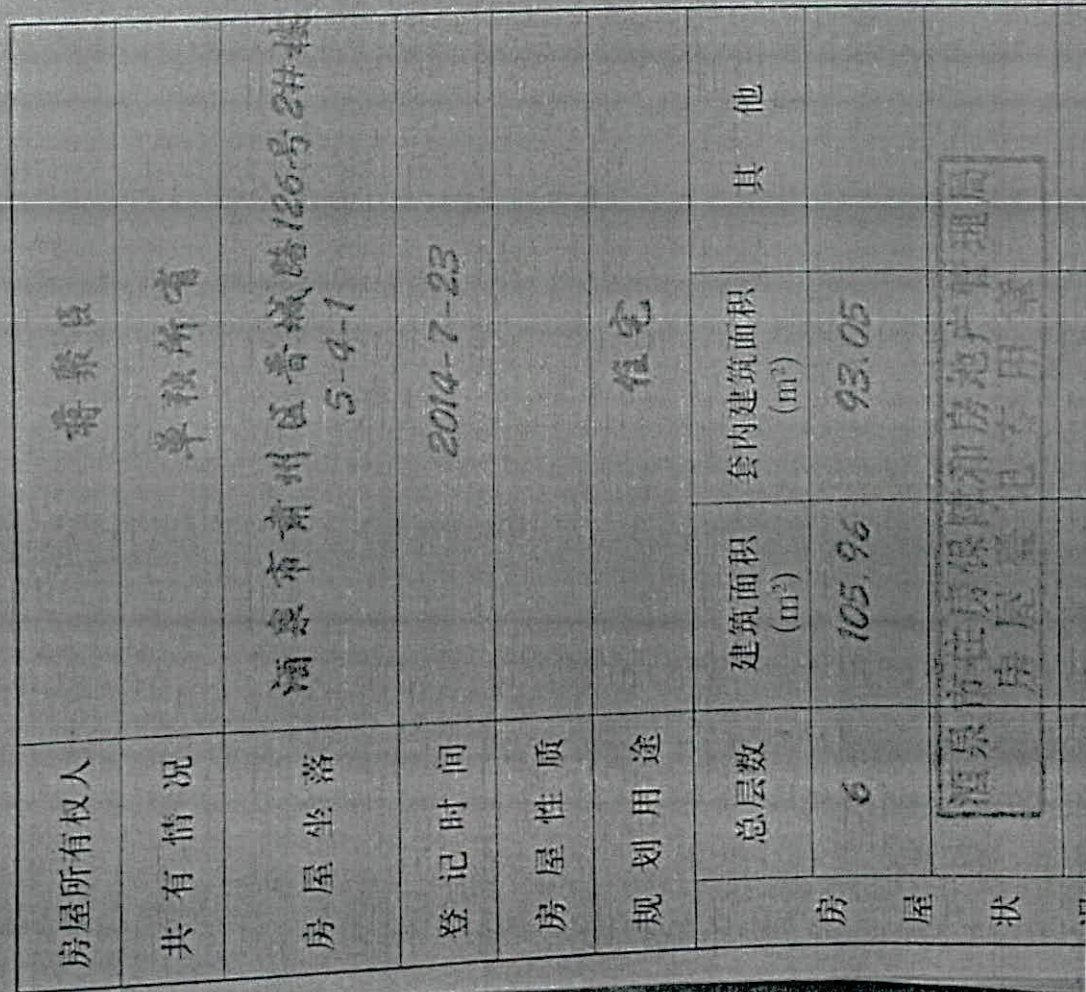 房屋所有权人 蒋聚臣
共有情况 单独所有
房屋坐落 酒泉市肃州区晋城路126号2#楼
5-4-1
登记时间 2014-7-23
房屋性质
规划用途 住宅
房屋状
总层数 建筑面积(m²) 套内建筑面积(m²) 其他
6 105.96 93.05
酒泉市住房保障和房地产管理局
房屋登记专用章